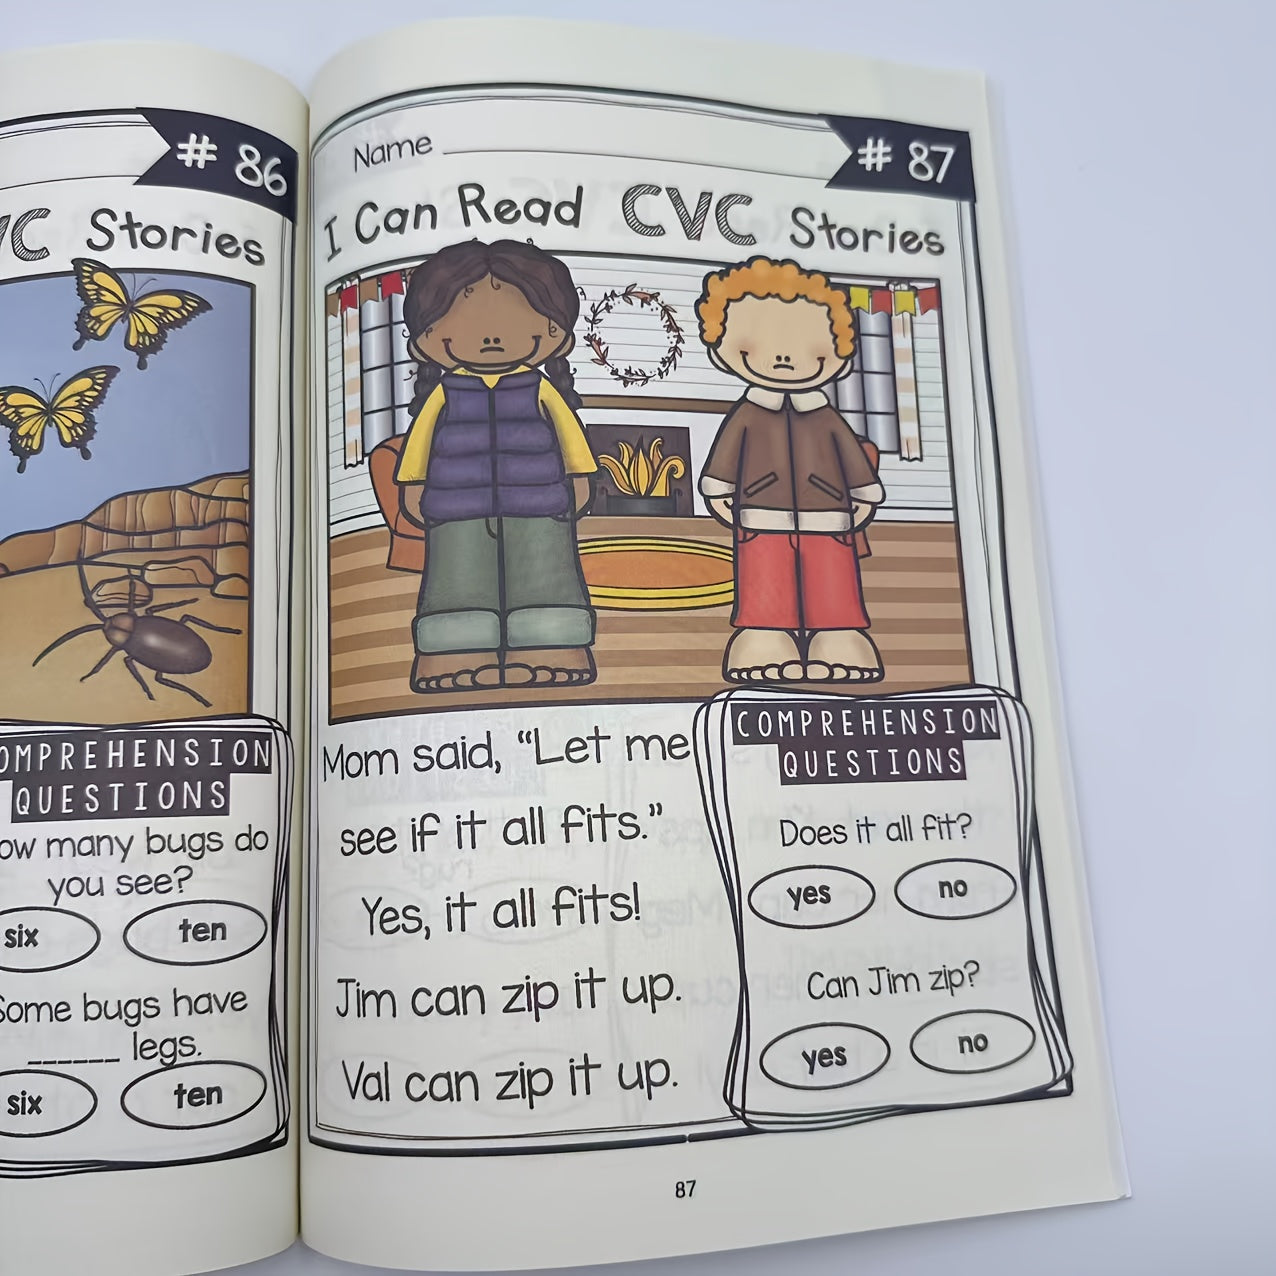 # 86
VC Stories
COMPREHENSION
QUESTIONS
ow many bugs do
you see?
six
ten
Some bugs have
______ legs.
six
ten
Name
# 87
I Can Read CVC Stories
Mom said, “Let me
see if it all fits.”
Yes, it all fits!
Jim can zip it up.
Val can zip it up.
COMPREHENSION
QUESTIONS
Does it all fit?
yes
no
Can Jim zip?
yes
no
87